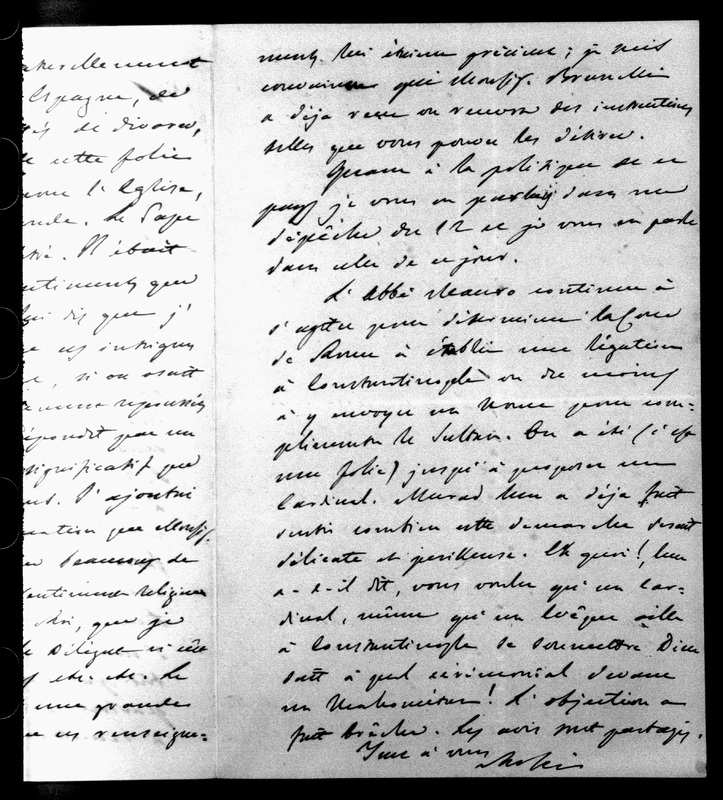 Espagne, de
de divorce,
cette folie
l'Eglise,
Le Pape
Il était
que
dis que j'
intrigues
si on osait
repoussées
répondit par un
significatif que
J'ajoutai
que Monsig.
beaucoup de
sentiment religieux
que je
etc. etc. Le
une grande
ces renseigne-
ments lui étaient précieux ; je suis
convaincu que Monsig. Brunelli
a déja reçu ou recevra des instructions
telles que vous pouvez les désirer.
Quant à la politique de ce
pays je vous en parlais dans ma
dépêche du 12 et je vous en parle
dans celle de ce jour.
L'Abbé Mauro continue à
s'agiter pour déterminer la Cour
de Rome à établir une légation
à Constantinople ou du moins
à y envoyer un Nonce pour com-
plimenter le Sultan. On a été (c'est
une folie) jusqu'à proposer un
Cardinal. Murad leur a déja fait
sentir combien cette démarche serait
délicate et périlleuse. Eh quoi!, leur
a-t-il dit, vous voulez qu'un Car-
dinal, même qu'un Evêque aille
à Constantinople se soumettre Dieu
sait à quel cérémonial devant
un Mahométan! L'objection a
fait brèche. Les avis sont partagés.
Tout à vous